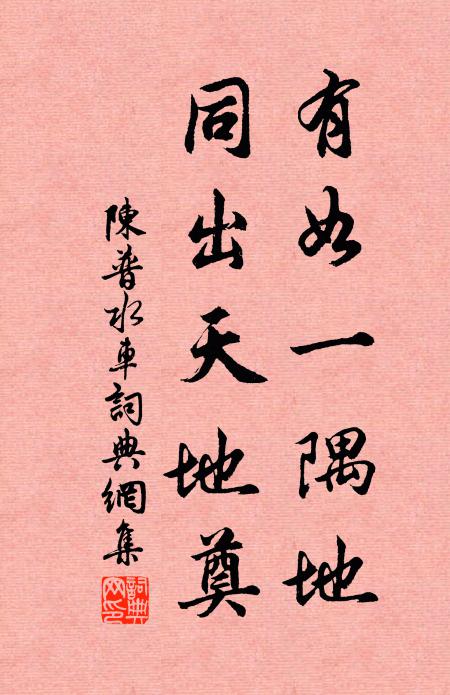 有如一隅地
同出天地奠
陳普水車詞典網集
詞典網印